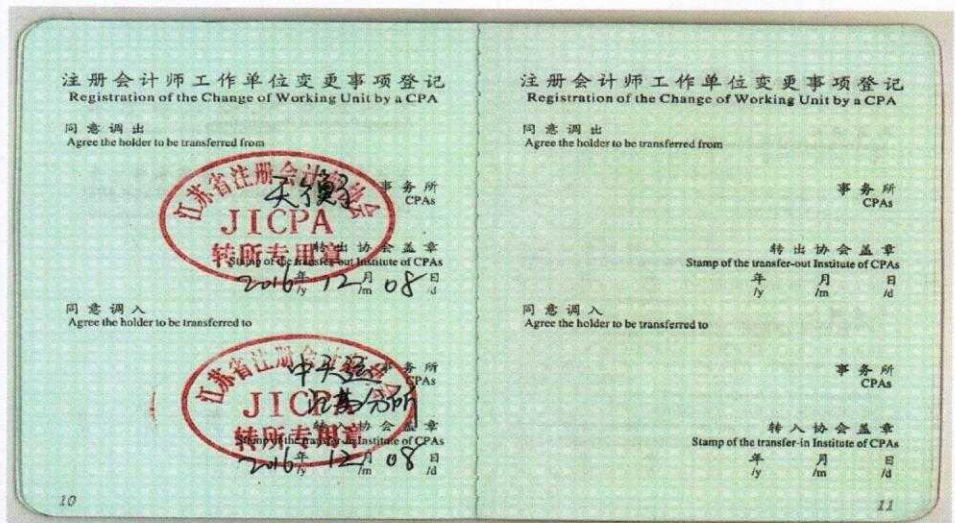 注册会计师工作单位变更事项登记
Registration of the Change of Working Unit by a CPA
同意调出
Agree the holder to be transferred from
天衡
事务所
CPAs
江苏省注册会计师协会
JICPA
转所专用章
转出协会盖章
Stamp of the transfer-out Institute of CPAs
2016年12月08日
/y /m /d
同意调入
Agree the holder to be transferred to
中天运
事务所
CPAs
江苏分所
江苏省注册会计师协会
JICPA
转所专用章
转入协会盖章
Stamp of the transfer-in Institute of CPAs
2016年12月08日
/y /m /d
10
注册会计师工作单位变更事项登记
Registration of the Change of Working Unit by a CPA
同意调出
Agree the holder to be transferred from
事务所
CPAs
转出协会盖章
Stamp of the transfer-out Institute of CPAs
年 月 日
/y /m /d
同意调入
Agree the holder to be transferred to
事务所
CPAs
转入协会盖章
Stamp of the transfer-in Institute of CPAs
年 月 日
/y /m /d
11